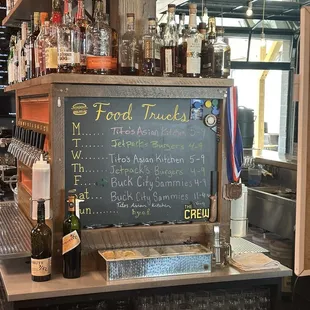 Food Trucks
M..... Tito's Asian Kitchen 5-9
T..... Jetpack's Burgers 4-9
W..... Tito's Asian Kitchen 5-9
Th.... Jetpack's Burgers 4-9
F..... Buck City Sammies 4-9
Sat... Buck City Sammies
Sun... Tito's Asian Kitchen
THE
CREW